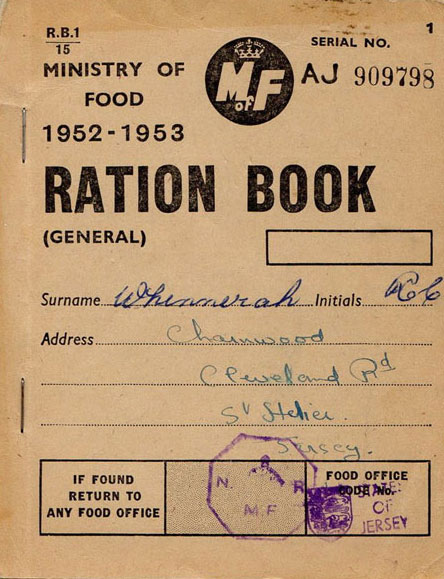 R.B.1
15
1
SERIAL NO.
AJ 909798
MINISTRY OF
FOOD
1952-1953
M of F
RATION BOOK
(GENERAL)
Surname Whinnerah Initials R C
Address Charnwood
Cleveland Rd
St Helier.
Jersey.
IF FOUND
RETURN TO
ANY FOOD OFFICE
FOOD OFFICE
CODE No.
N. R
M.F
STATES
OF
JERSEY